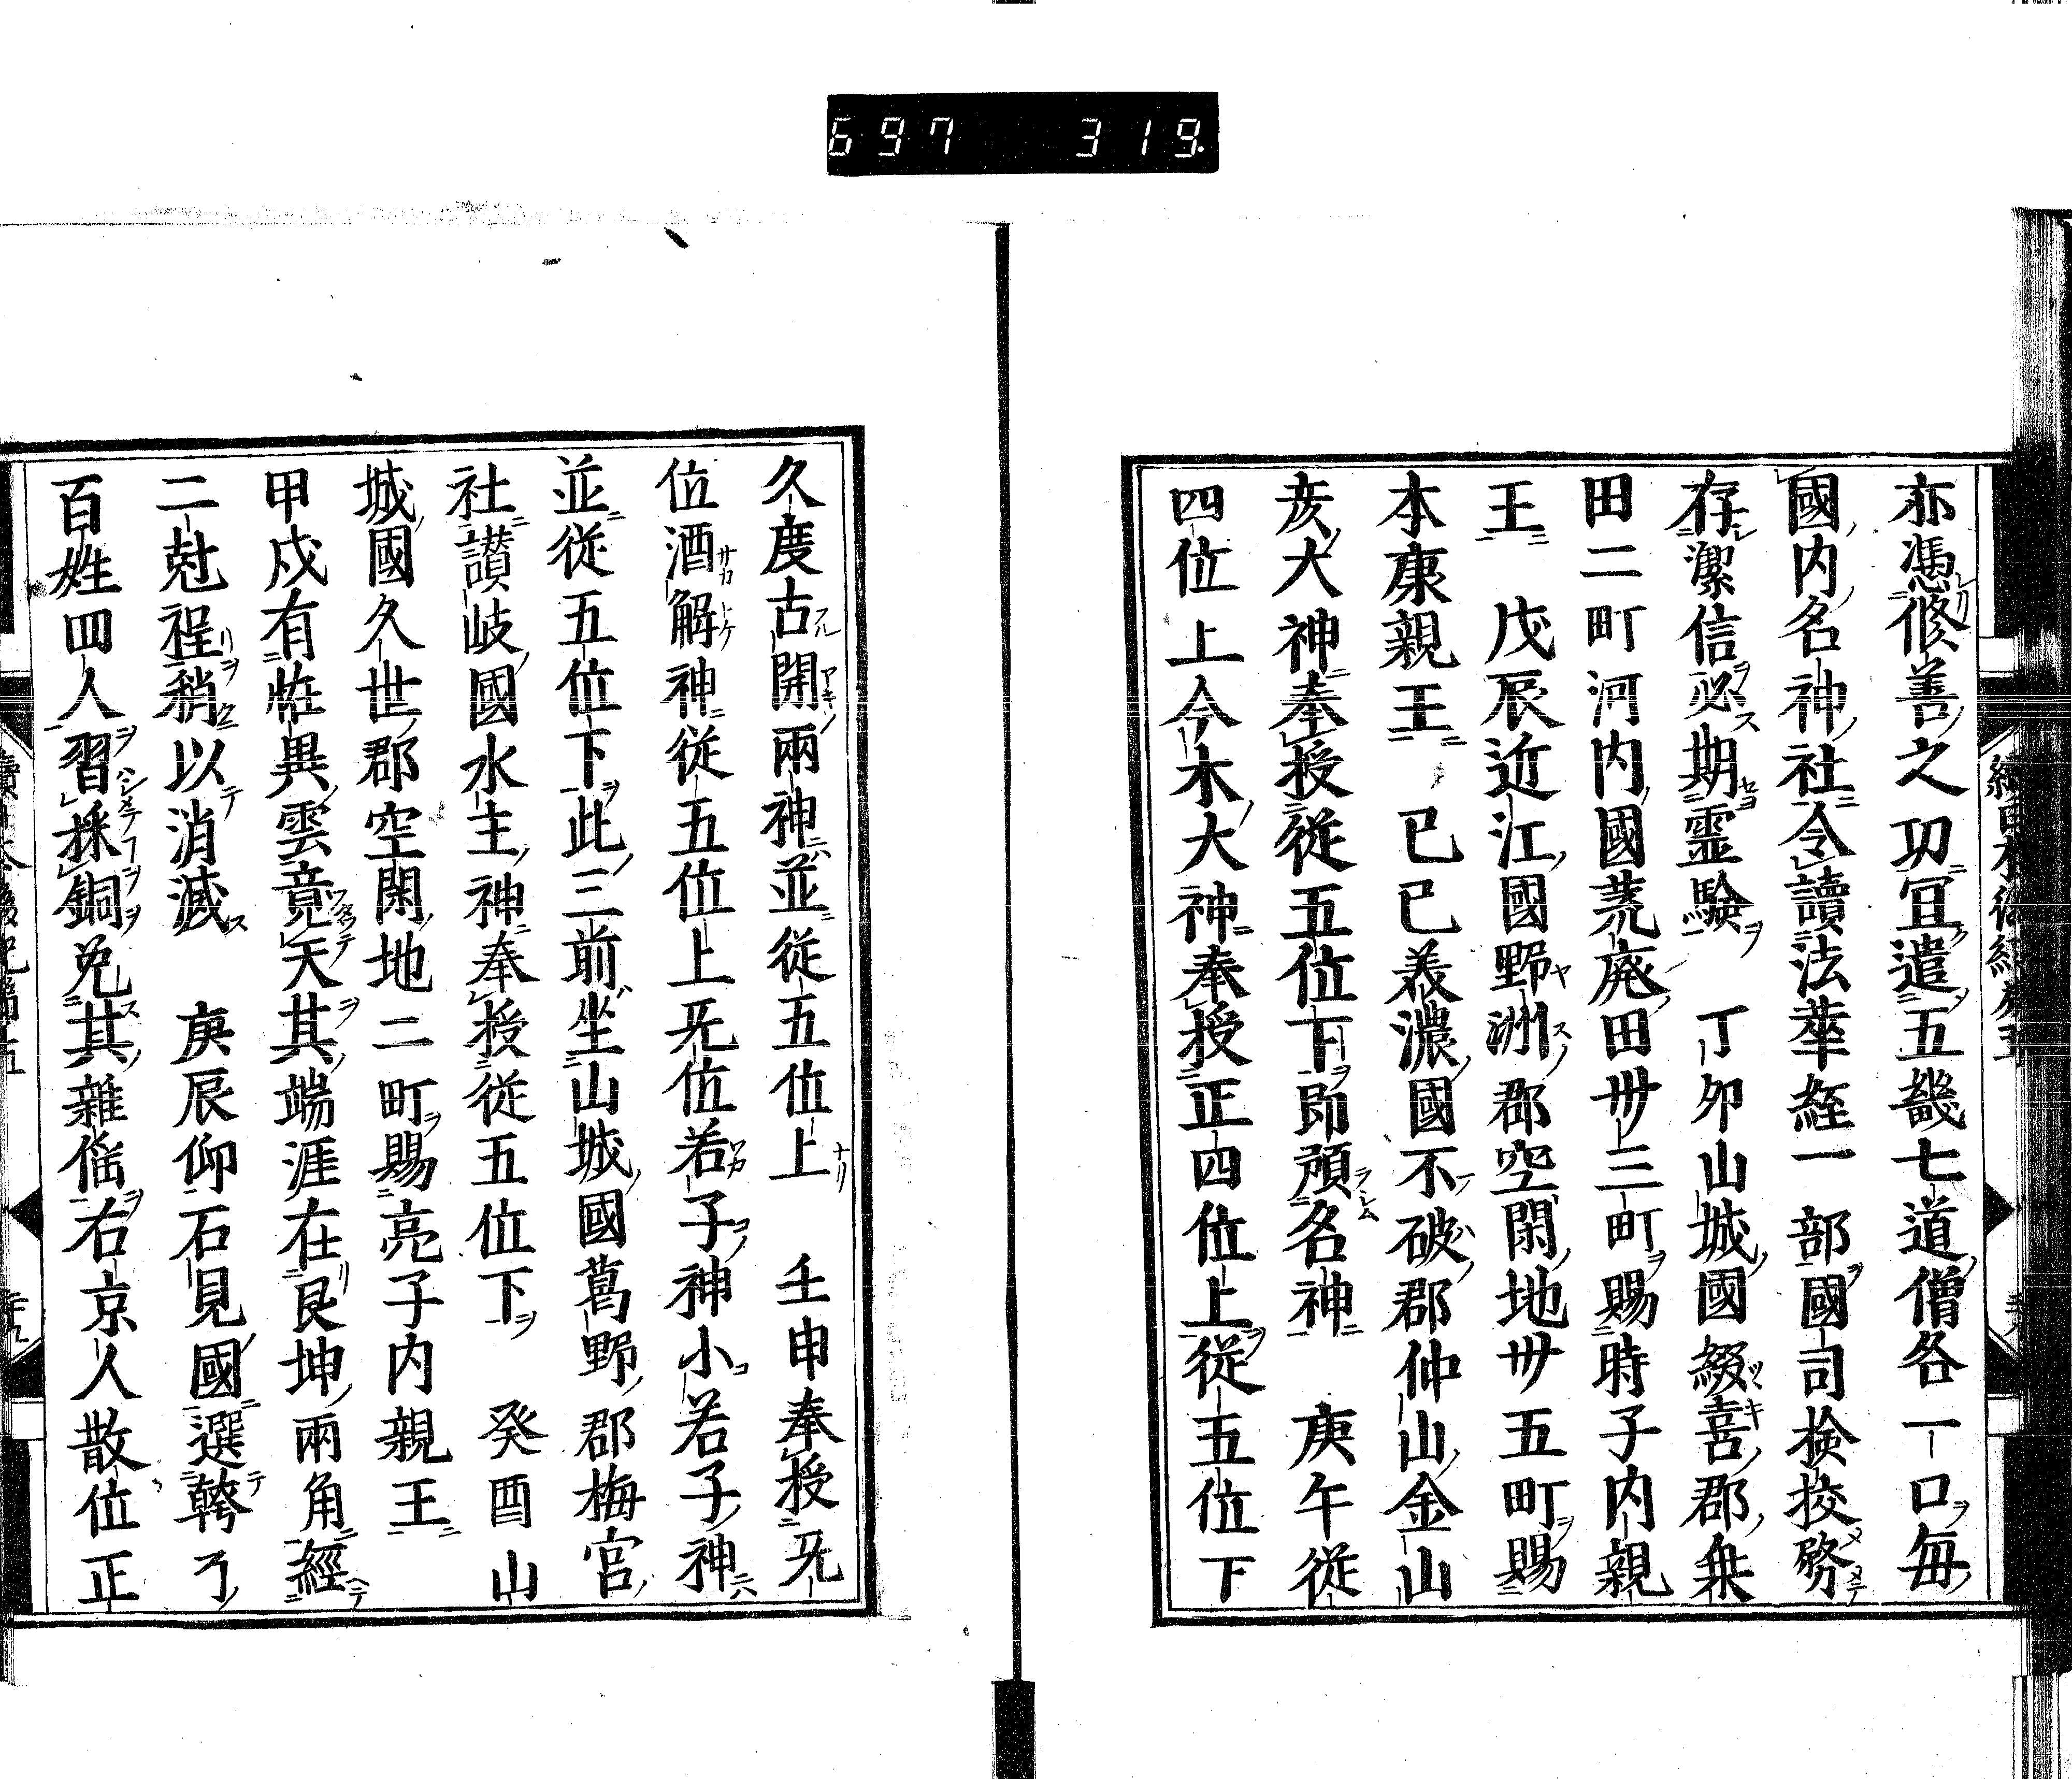 697 319
亦馮修善之功冝遣五畿七道僧各一口毎
國内名神社令讀法華經一部國司檢挍務
存潔信必期霊験　丁夘山城國綴喜郡乗
田二町河内國荒廃田丗三町賜時子内親
王　戊辰近江國野洲郡空閑地丗五町賜
本康親王　已已羲濃國不破郡仲山金山
彦大神奉授從五位下即預名神　庚午從
四位上今木大神奉授正四位上從五位下
久度古開兩神並從五位上　壬申奉授旡
位酒解神從五位上旡位若子神小若子神
並從五位下此三前坐山城國葛野郡梅宮
社讃岐國水主神奉授從五位下　癸酉山
城國久世郡空閑地二町賜亮子内親王
甲戍有恠異雲竟天其端涯在艮坤兩角經
二尅程稍以消滅　庚辰仰石見國選幹了
百姓四人習採銅免其雜徭右京人散位正